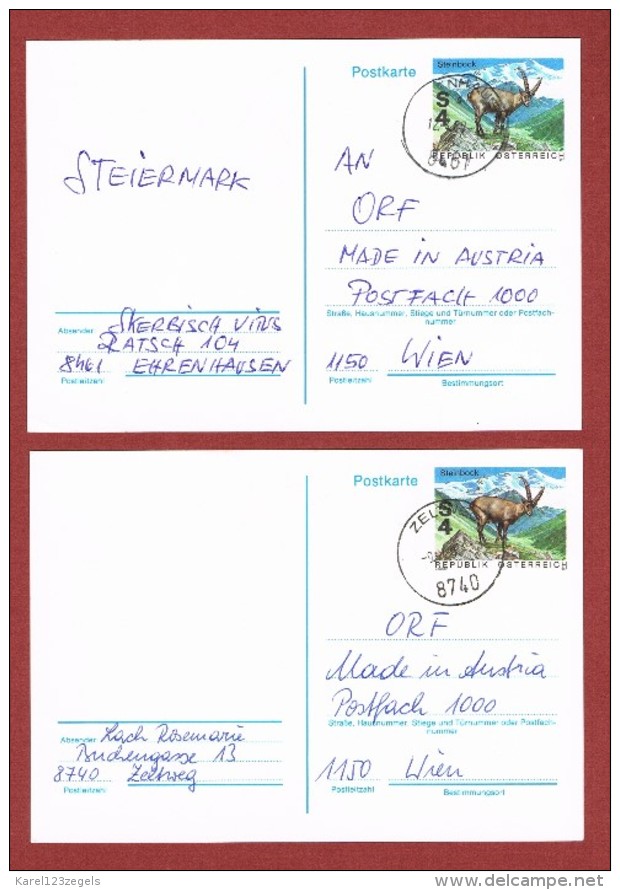 Postkarte
Steinbock
S
4
REPUBLIK ÖSTERREICH
8461
STEIERMARK
AN
ORF
MADE IN AUSTRIA
POSTFACH 1000
Straße, Hausnummer, Stiege und Türnummer oder Postfach-
nummer
1150 WIEN
Postleitzahl Bestimmungsort
Absender SKERBISCH VITUS
RATSCH 104
8461 EHRENHAUSEN
Postleitzahl
Postkarte
Steinbock
S
4
REPUBLIK ÖSTERREICH
8740
ORF
Made in Austria
Postfach 1000
Straße, Hausnummer, Stiege und Türnummer oder Postfach-
nummer
1150 Wien
Postleitzahl Bestimmungsort
Absender Rosemarie
13
8740 Zeltweg
Postleitzahl
Karel123zegels
delcampe.net